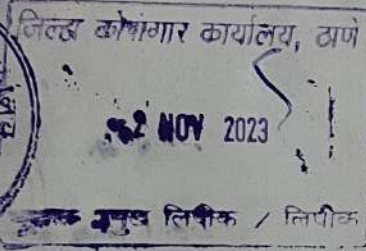 जिल्हा कोषागार कार्यालय, ठाणे
2 NOV 2023
मुख्य लिपीक / लिपीक